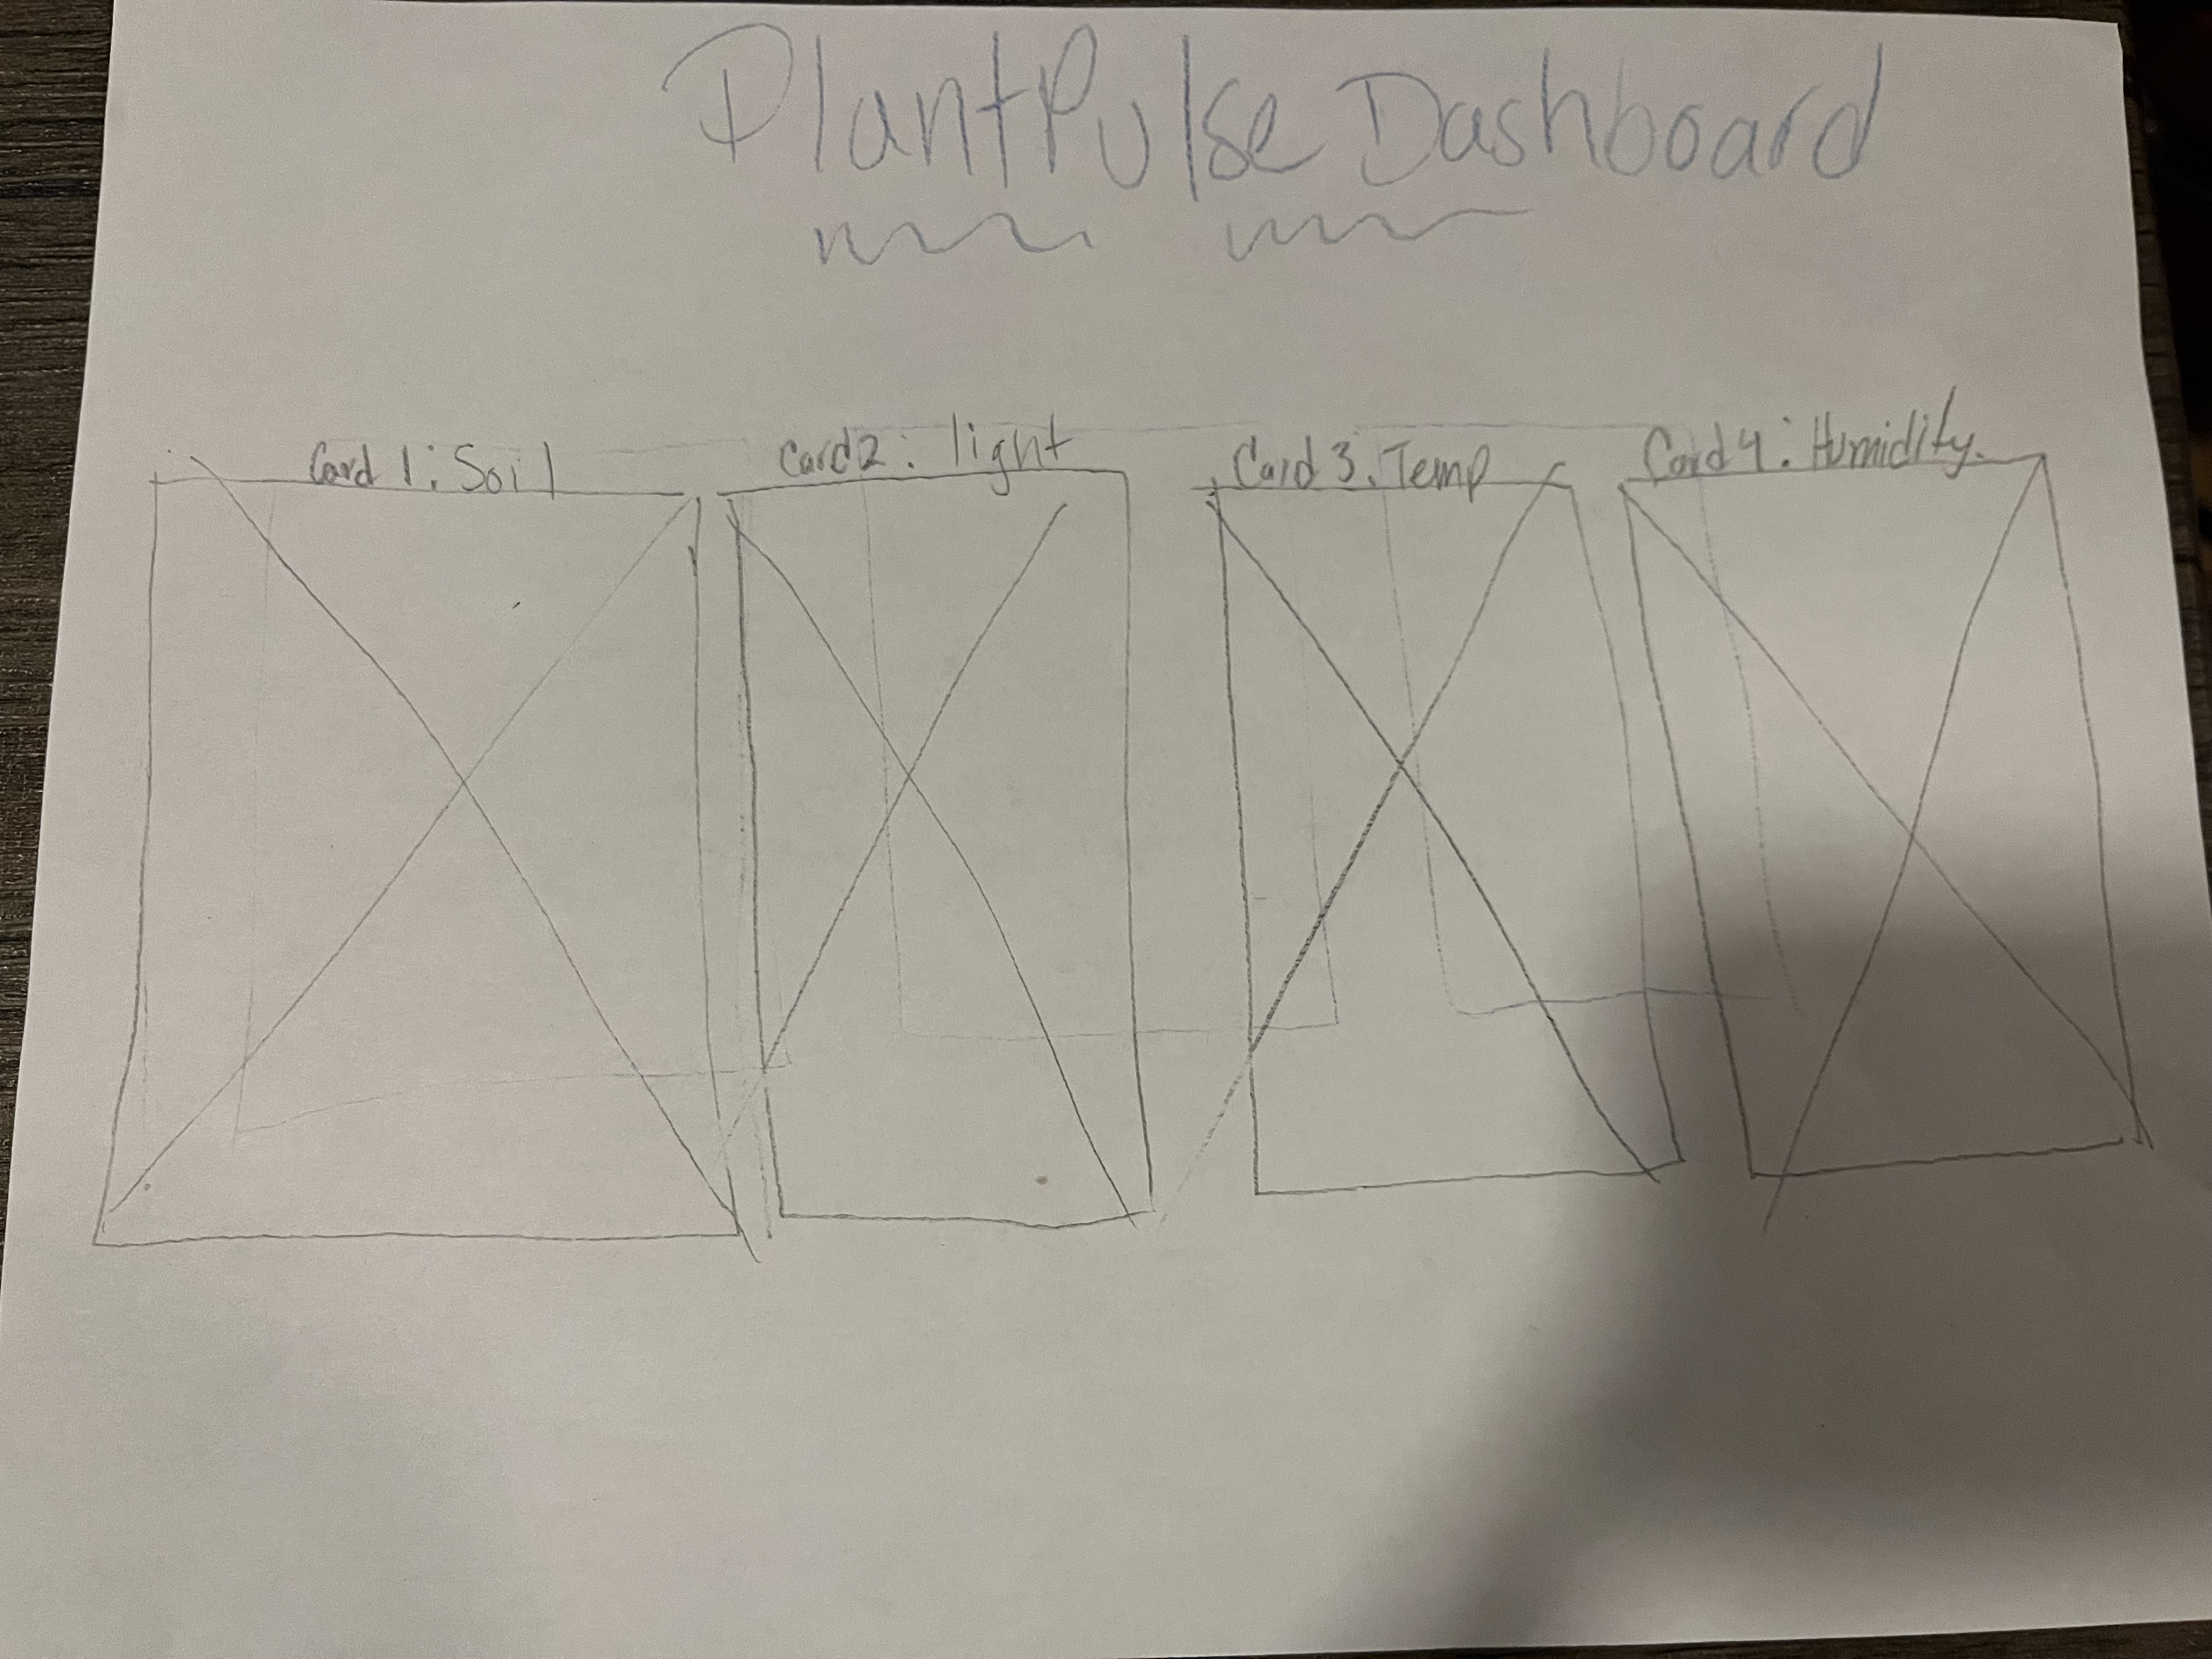 PlantPulse Dashboard
Card 1: Soil
Card 2: light
Card 3: Temp
Card 4: Humidity